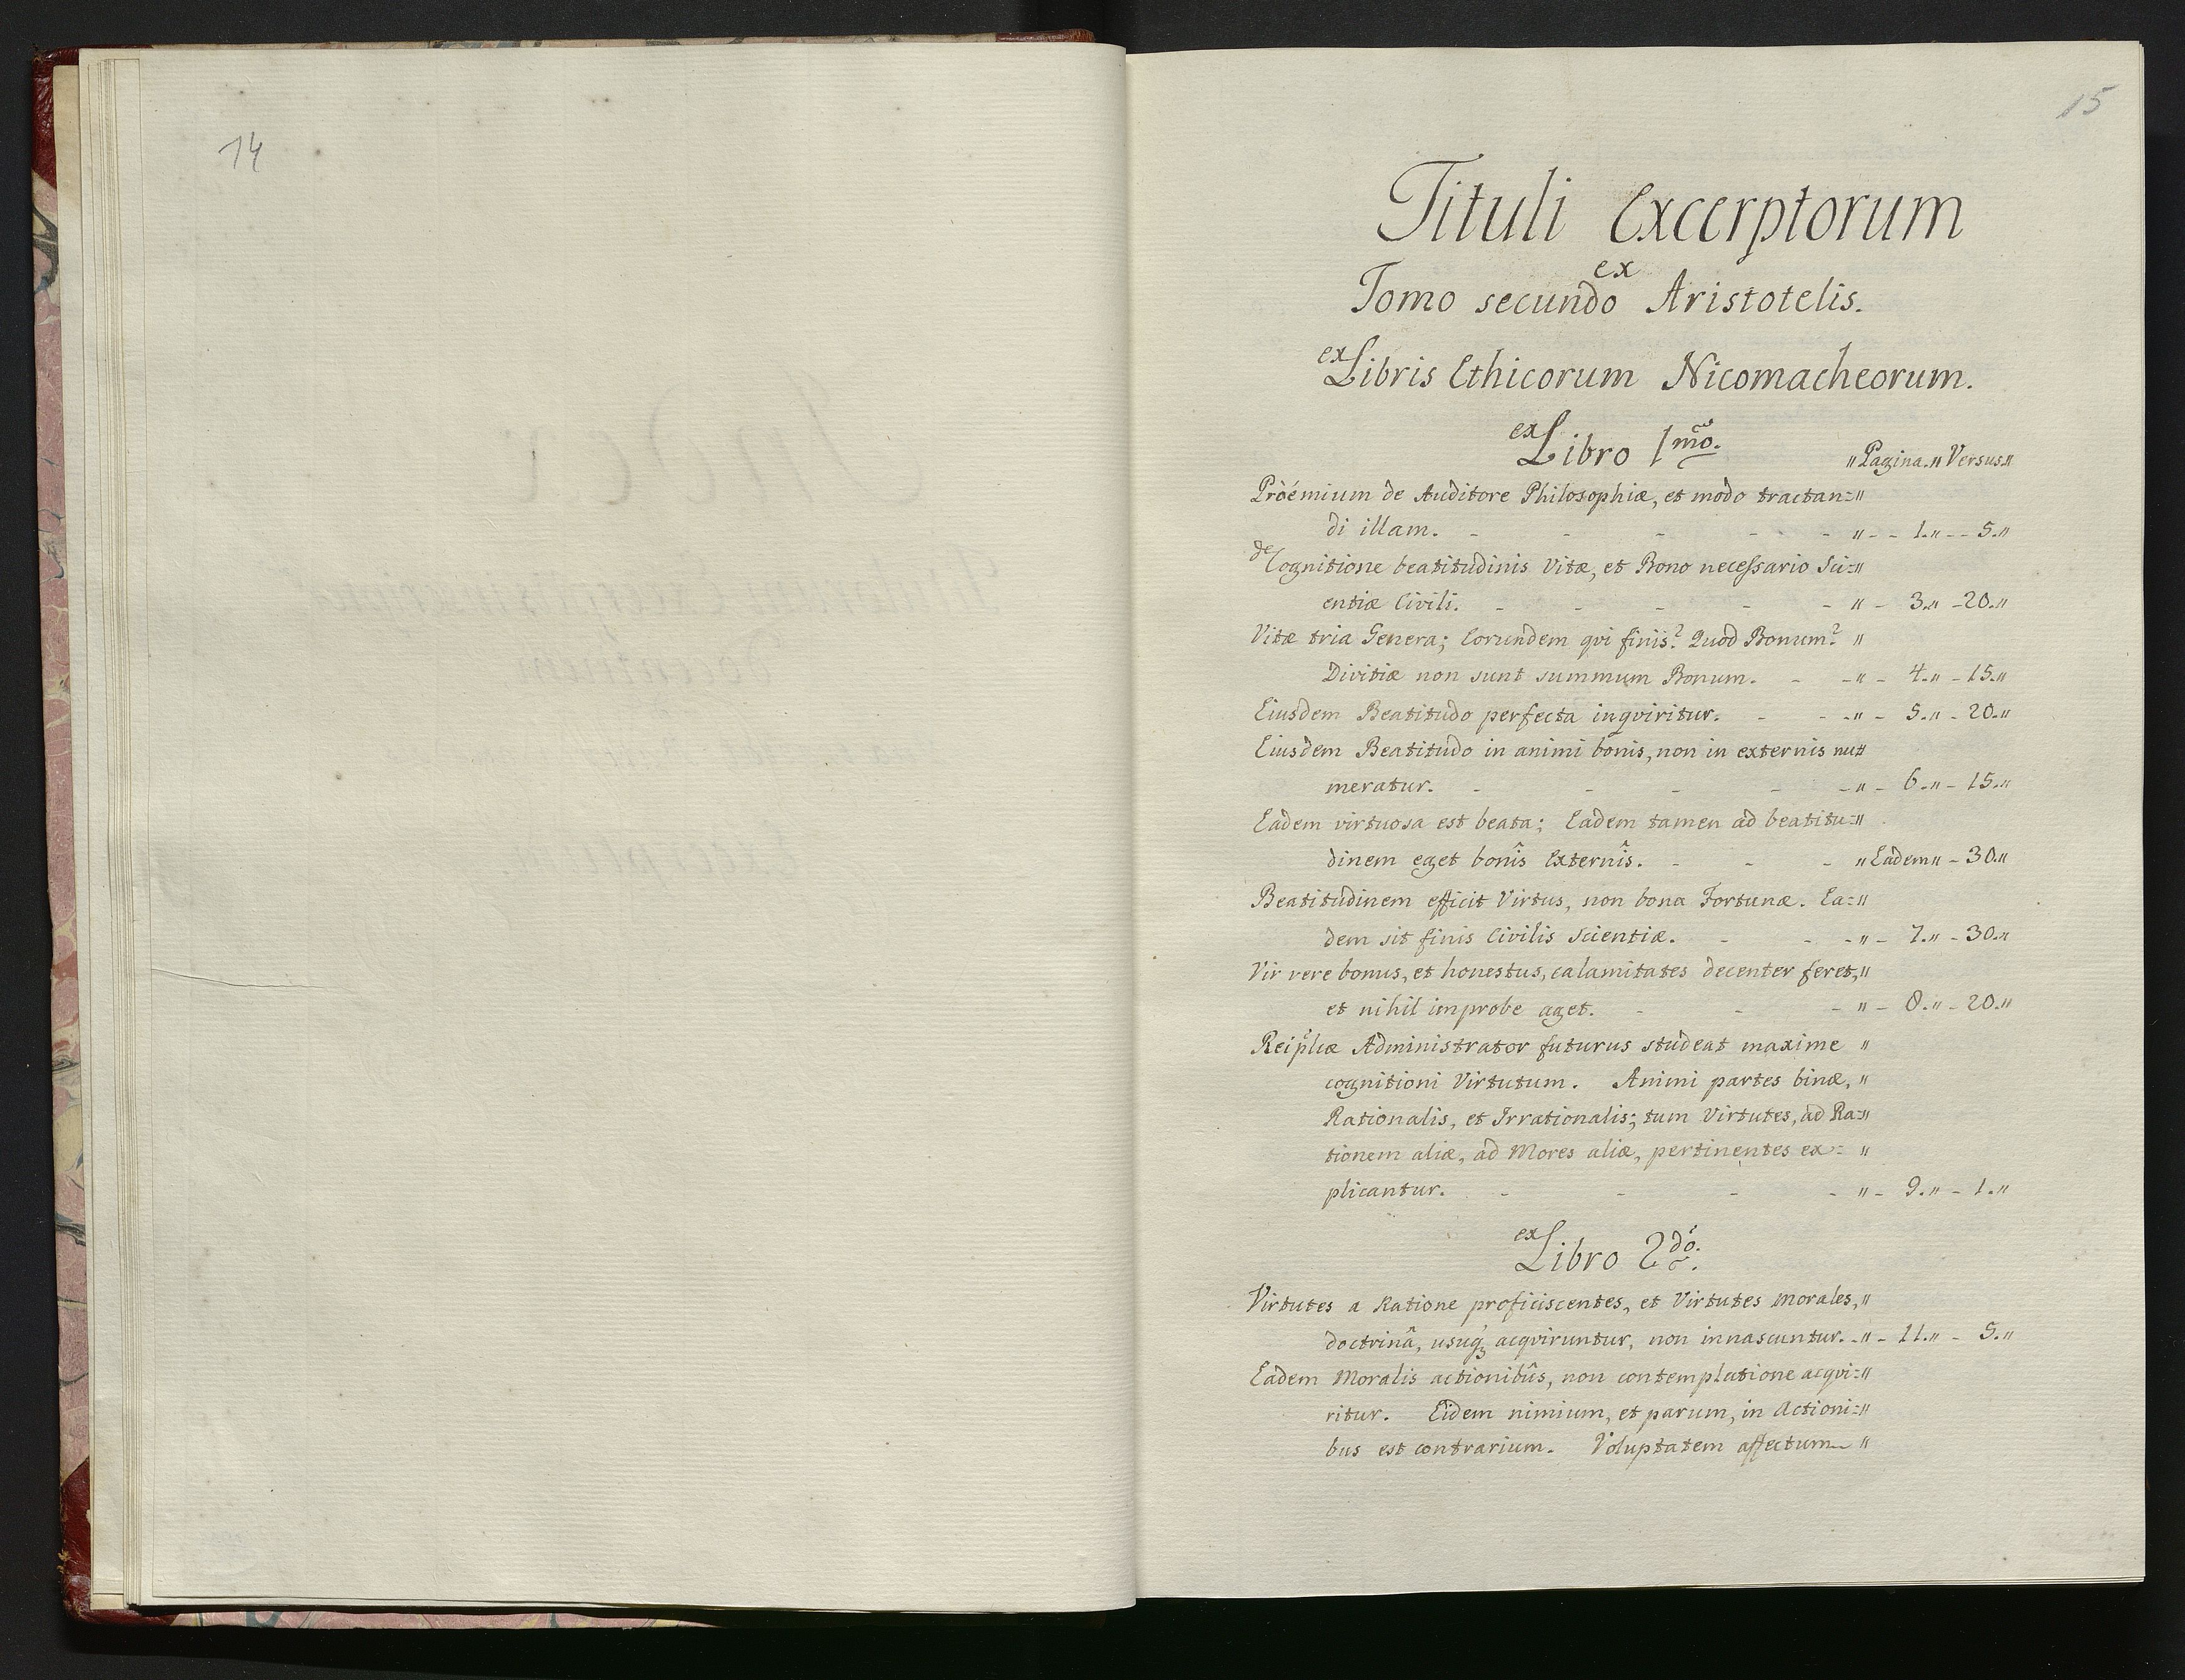 14
15
Tituli Excerptorum
ex
Tomo secundo Aristotelis.
ex Libris Ethicorum Nicomacheorum.
ex Libro 1mo.
" Pagina. " Versus. "
Pròémium de Auditore Philosophiæ, et modo tractan= "
di illam. - - - - - " - - 1. " - - 5. "
de Cognitione beatitudinis Vitæ, et Bono necessario Sci= "
entiæ Civili. - - - - - " - 3. " - 20. "
Vitæ tria Genera; Eorundem qvi finis? Quod Bonum? "
Divitiæ non sunt summum Bonum. - - " - 4. " - 15. "
Eiusdem Beatitudo perfecta inqviritur. - - - " - 5. " - 20. "
Eiusdem Beatitudo in animi bonis, non in externis nu= "
meratur. - - - - - " - 6. " - 15. "
Eadem virtuosa est beata; Eadem tamen ad beatitu= "
dinem eget bonîs Externîs. - - - " Eadem " - 30. "
Beatitudinem efficit Virtus, non bona Fortunæ. Ea= "
dem sit finis Civilis Scientiæ. - - - " - 7. " - 30. "
Vir vere bonus, et honestus, calamitates decenter feret, "
et nihil improbe aget. - - - " - 8. " - 20. "
Reiplicæ Administrator futurus studeat maxime "
cognitioni Virtutum. Animi partes binæ, "
Rationalis, et Irrationalis; tum Virtutes, ad Ra= "
tionem aliæ, ad Mores aliæ, pertinentes ex= "
plicantur. - - - - " - 9. " - 1. "
ex Libro 2do.
Virtutes a Ratione proficiscentes, et Virtutes Morales, "
doctrinâ, usuq; acqviruntur, non innascuntur. - " - 11. " - 5. "
Eadem Moralis actionibûs, non contemplatione acqvi= "
ritur. Eidem nimium, et parum, in Actioni= "
bus est contrarium. Voluptatem affectum "